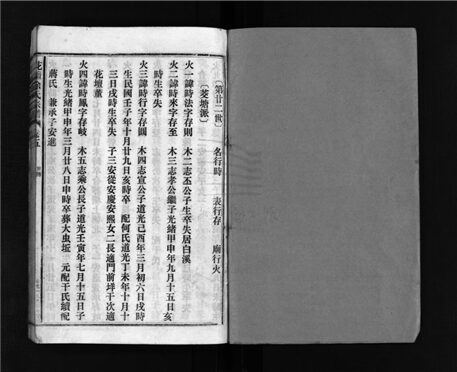 〔第廿二世〕 名行時 表行存 廟行火
〔芰塘派〕
火一諱時法字存則 木二志丕公子生卒失居白溪
火二諱時來字存至 木三志孝公繼子光緒甲申年九月十五日亥
時生卒失
火三諱時行字存圖 木四志宣公子道光己酉年三月初六日戌時
生民國壬子年十月廿九日亥時卒 配何氏道光丁未年十月十
三日戌時生卒失 子三安從安慶安熙女二長適門前坪干次適
花壇董
火四諱時鳳字存岐 木五志乘公長子道光壬寅年七月十五日子
時生光緒甲申年三月廿八日申時卒葬大虫坵 元配干氏續配
蔣氏 兼承子安進